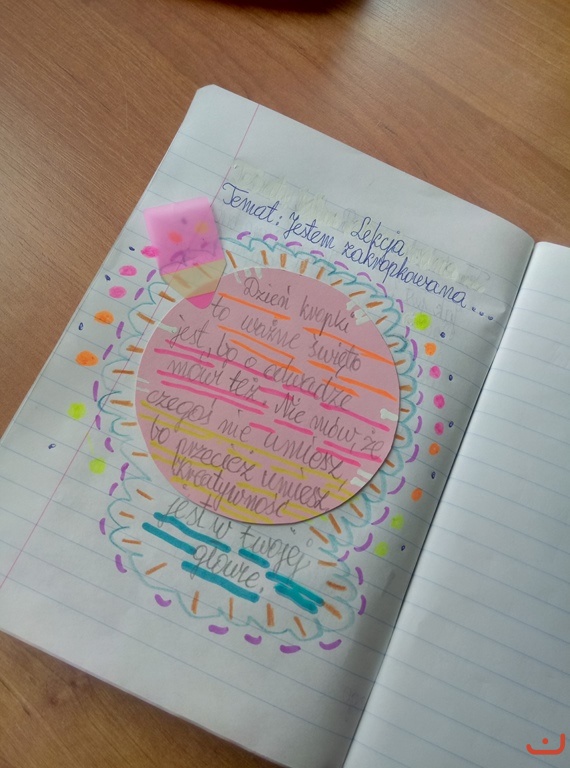 Lekcja
Temat: Jestem zakropkowana...
Dzień kropki
to ważne święto
jest, bo o odwadze
mówi też. Nie mów, że
czegoś nie umiesz,
bo przecież umiesz
kreatywność
jest w twojej
głowie.